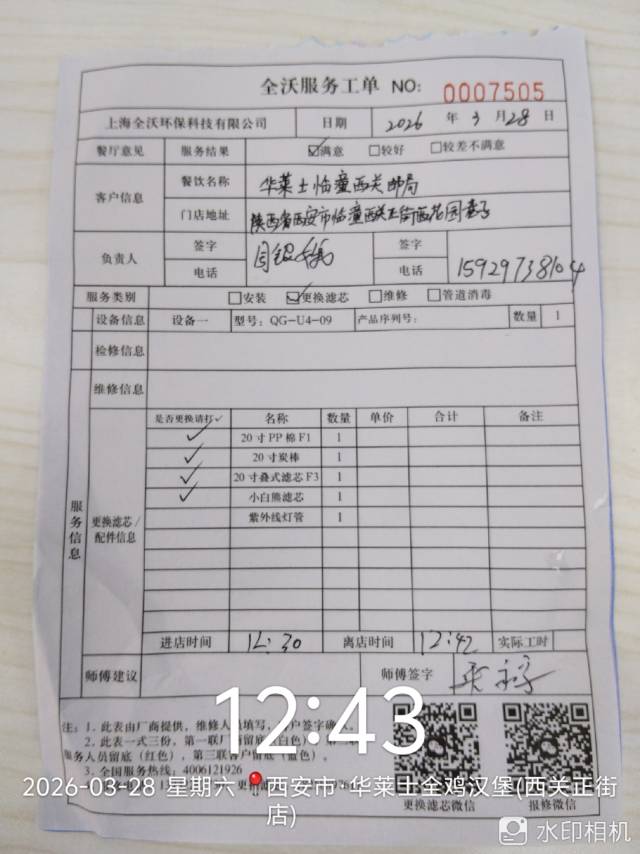 全沃服务工单 NO: 0007505
上海全沃环保科技有限公司 日期 2026 年 3 月 28 日
餐厅意见 服务结果 ☑满意 □较好 □较差不满意
客户信息 餐饮名称 华莱士临潼西关邮局
门店地址 陕西省西安市临潼西关正街西花园巷子
负责人 签字 签字
电话 电话 15929738104
服务类别 □安装 ☑更换滤芯 □维修 □管道消毒
设备信息 设备一 型号: QG-U4-09 产品序列号: 数量 1
检修信息
维修信息
服务信息 更换滤芯/配件信息 是否更换请打✓ 名称 数量 单价 合计 备注
✓ 20寸PP棉F1 1
✓ 20寸炭棒 1
✓ 20寸叠式滤芯F3 1
✓ 小白熊滤芯 1
紫外线灯管 1
进店时间 12:30 离店时间 12:42 实际工时
师傅建议 师傅签字
注: 1. 此表由厂商提供, 维修人员填写, 客户签字确
2. 此表一式三份, 第一联厂商留底(白色)
服务人员留底(红色), 第三联客户留底(蓝色)。
3. 全国服务热线: 4006121926
更换滤芯微信 报修微信
12:43
2026-03-28 星期六 西安市·华莱士全鸡汉堡(西关正街店)
水印相机